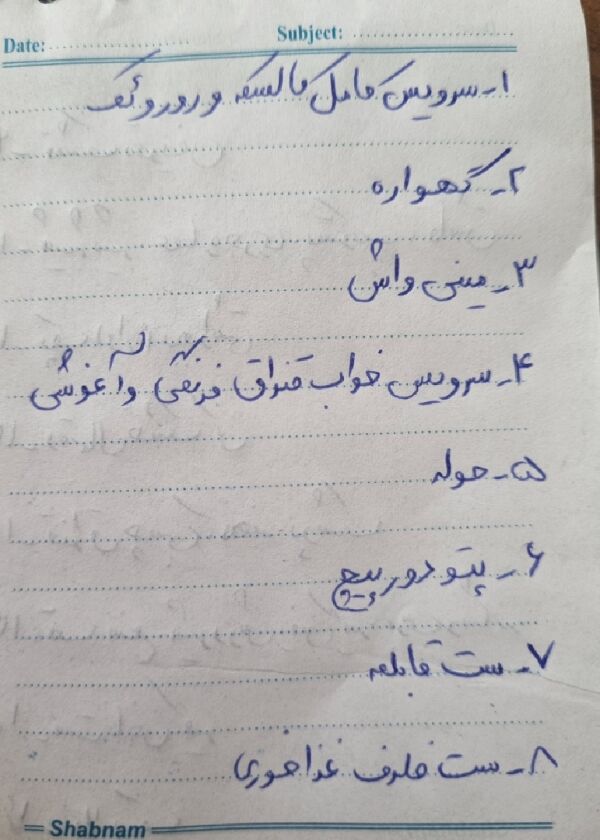 Date: Subject:
۱- سرویس کامل کالسکه و روروئک
۲- گهواره
۳- مینی واش
۴- سرویس خواب قنداق فرنگی و آغوشی
۵- حوله
۶- پتو دورپیچ
۷- ست قابلمه
۸- ست ظرف غذاخوری
Shabnam